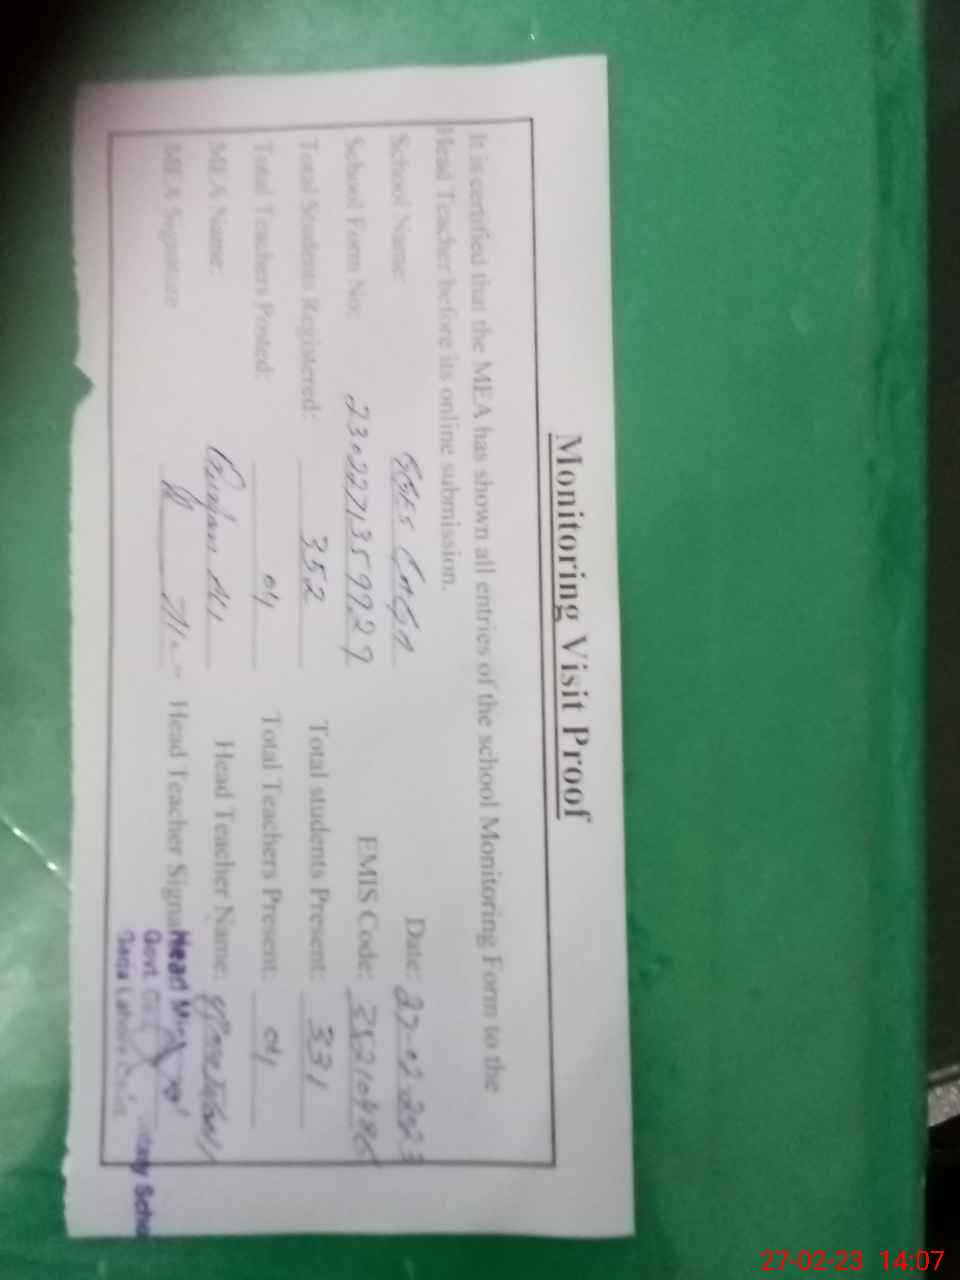 Monitoring Visit Proof
It is certified that the MEA has shown all entries of the school Monitoring Form to the
Head Teacher before its online submission.
School Name: Date: 27-02-2023
School Form No: 2302271359929 EMIS Code:
Total Students Registered: 352 Total students Present: 331
Total Teachers Posted: 04 Total Teachers Present: 04
MEA Name: Ali Head Teacher Name:
MEA Signature Head Teacher
Head
Govt
27-02-23 14:07